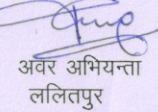 अवर अभियन्ता
ललितपुर